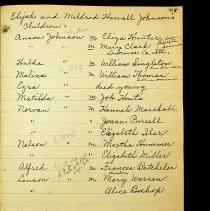 48
Elijah and Mildred Horrall Johnson's
Children:
Anson Johnson m Eliza Hunter
" m Mary Clark
Lawrence Co. Ill.
Hulda m William Singleton
Malina m William Thomas
Ezra died young
Matilda m Job Hunts
Norvan m Hannah Marshall
" Joann Pursell
" Elizabeth Isler
Nelson m Martha Hummer
" Elizabeth Miller
Alfred m Frances Batchelor
Lenson m Mary Warren
" Alice Bishop